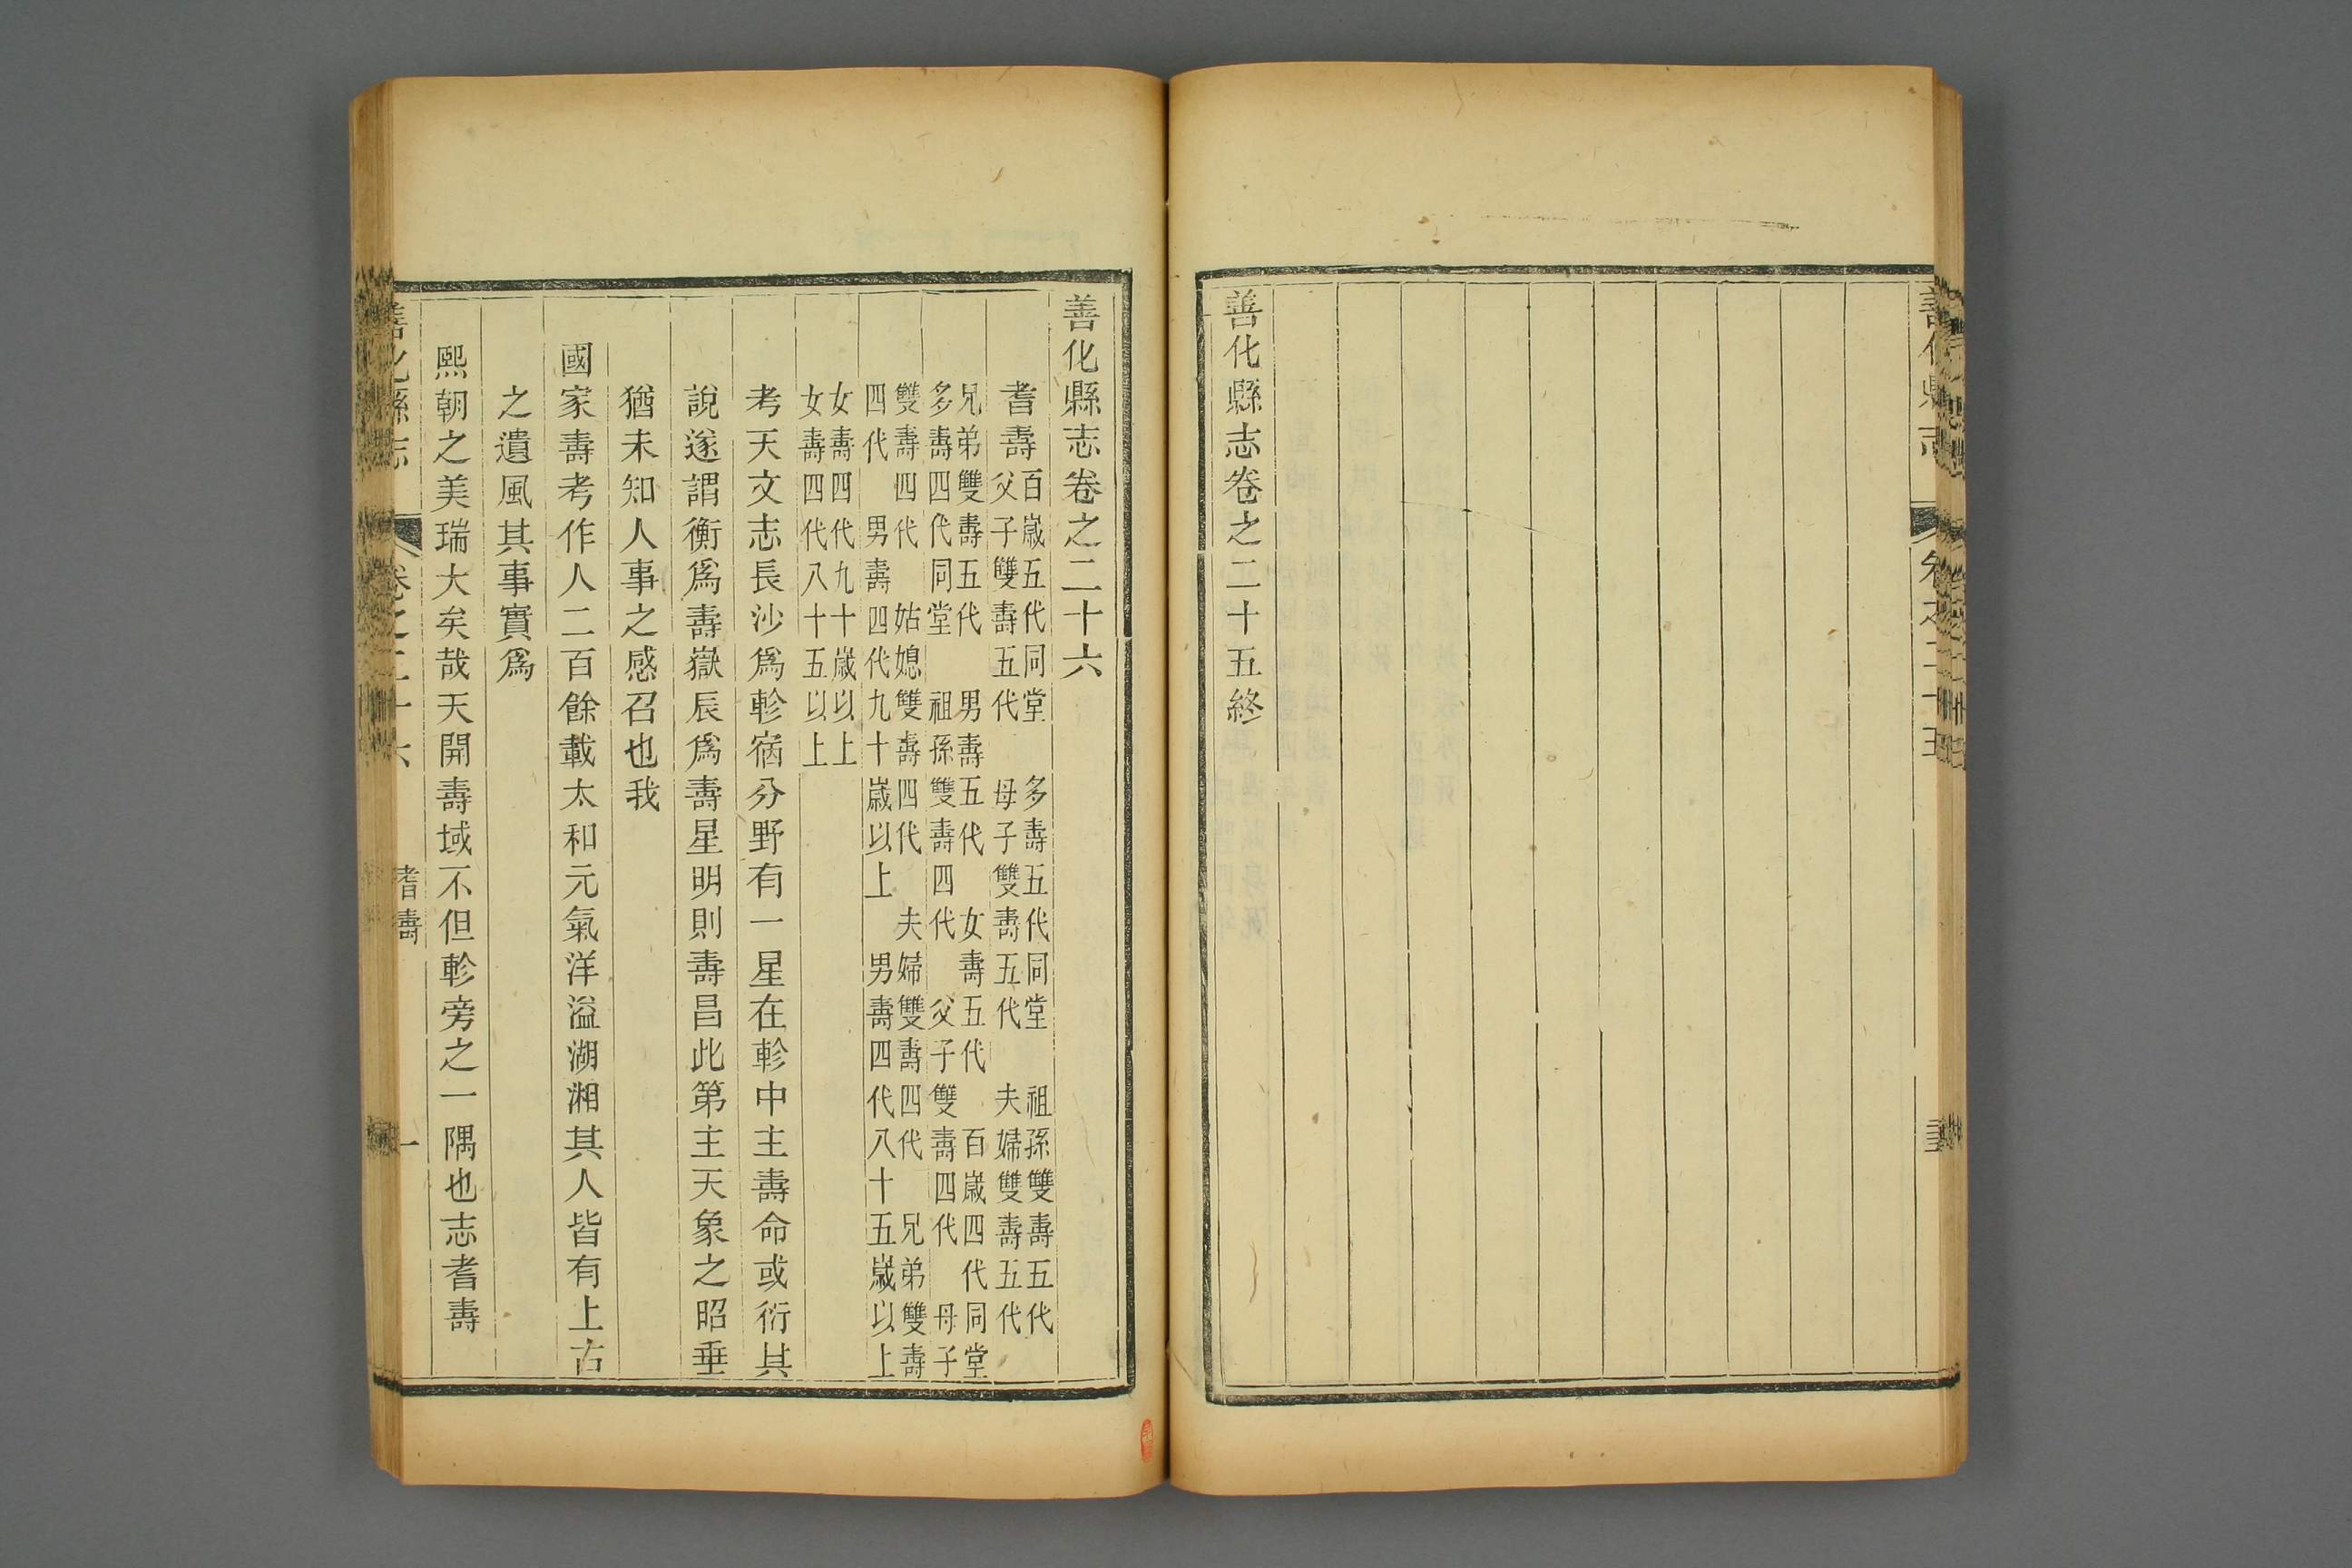 善化縣志卷之二十五終
善化縣志卷之二十六
耆壽
百歲五代同堂 多壽五代同堂 祖孫雙壽五代
父子雙壽五代 母子雙壽五代 夫婦雙壽五代
兄弟雙壽五代 男壽五代 女壽五代 百歲四代同堂
多壽四代同堂 祖孫雙壽四代 父子雙壽四代 母子
雙壽四代 姑媳雙壽四代 夫婦雙壽四代 兄弟雙壽
四代 男壽四代九十歲以上 男壽四代八十五歲以上
女壽四代九十歲以上
女壽四代八十五以上
考天文志長沙爲軫宿分野有一星在軫中主壽命或衍其
說遂謂衡爲壽嶽辰爲壽星明則壽昌此第主天象之昭垂
猶未知人事之感召也我
國家壽考作人二百餘載太和元氣洋溢湖湘其人皆有上古
之遺風其事實爲
熙朝之美瑞大矣哉天開壽域不但軫旁之一隅也志耆壽
善化縣志 卷之二十六 耆壽 一